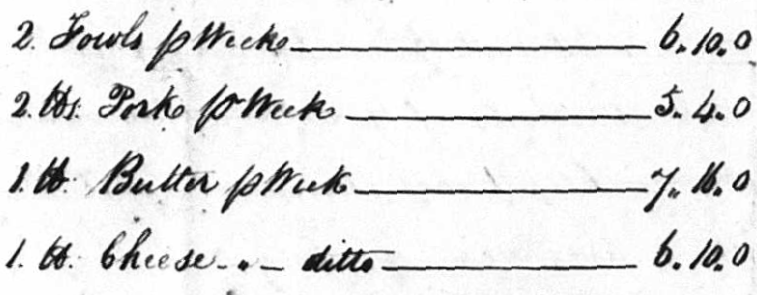 2. Fowls p Week 6.10.0
2. lbs. Pork p Week 5.4.0
1. lb. Butter p Week 7.16.0
1. lb. Cheese - " - ditto 6.10.0